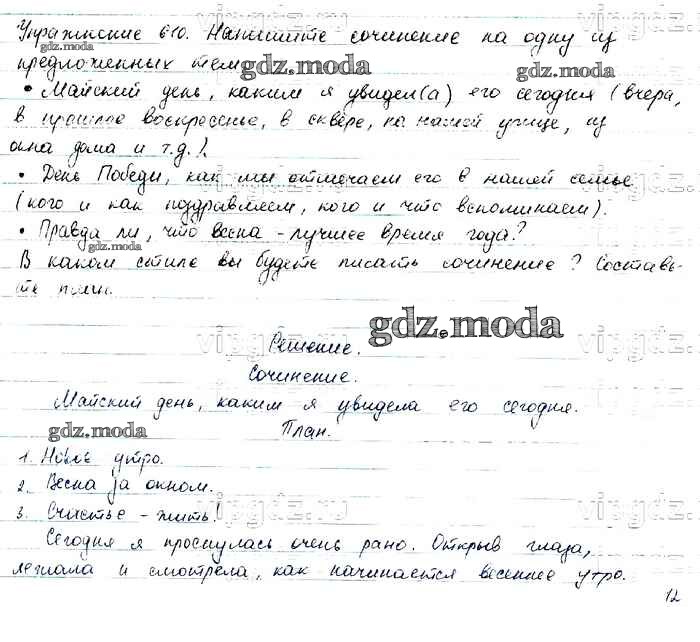 Упражнение 610. Напишите сочинение на одну из
gdz.moda
предложенных тем
gdz.moda
gdz.moda
• Майский день, каким я увидел(а) его сегодня (вчера,
в прошлое воскресенье, в сквере, на нашей улице, из
окна дома и т.д.).
• День Победы, как мы отмечаем его в нашей семье
(кого и как поздравляем, кого и что вспоминаем).
• Правда ли, что весна - лучшее время года?
gdz.moda
В каком стиле вы будете писать сочинение? Составь-
те план.
gdz.moda
Решение.
Сочинение.
Майский день, каким я увидела его сегодня.
gdz.moda
План.
1. Новое утро.
2. Весна за окном.
3. Счастье - жить!
gdz.moda
Сегодня я проснулась очень рано. Открыв глаза,
лежала и смотрела, как начинается весеннее утро.
12